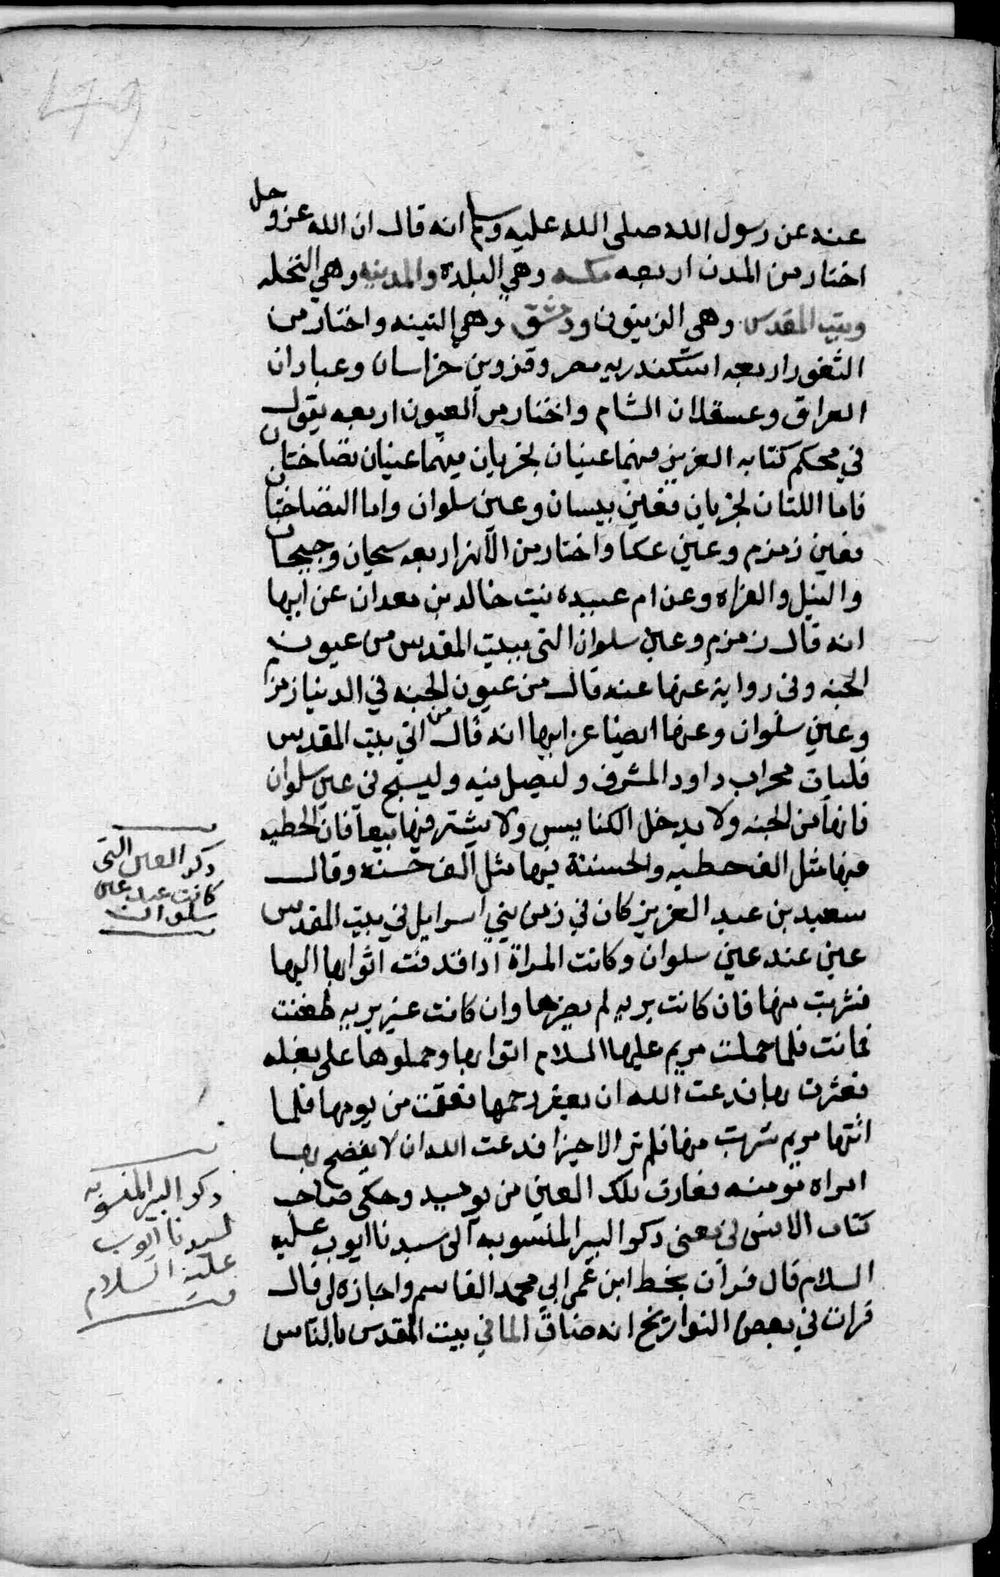 عنه عن رسول الله صلى الله عليه وسلم انه قال ان الله عز وجل
اختار من المدن اربعه مكه وهي البلده والمدينه وهي النخله
وبيت المقدس وهي الزيتون ودمشق وهي التينه واختار من
الثغور اربعه استكندريه مصر وقزوين خراسان وعبادان
العراق وعسقلان الشام واختار من العيون اربعه يقول
في محكم كتابه العزيز فيهما عينان تجريان فيهما عينان نضاختان
فاما اللتان تجريان فعين بيسان وعين سلوان واما النضاختان
فعين زمزم وعين عكا واختار من الانهار اربعه سيحان وجيحان
والنيل والفراه وعن ام عبيده بنت خالد بن معدان عن ابيها
انه قال زمزم وعين سلوان التي ببيت المقدس من عيون
الجنه وفي رواية عنها عنه قال من عيون الجنه في الدنيا زمزم
وعين سلوان وعنها ايضا عن ابيها انه قال من اتي بيت المقدس
فليات محراب داود المشرف وليصل فيه وليسبح في عين سلوان
فانها من الجنه ولا يدخل الكنايس ولا يشتر فيها بيعا فان الخطيه
فيها مثل الف خطيه والحسنة فيها مثل الف حسنه وقال
سعيد بن عبد العزيز كان في زمن بني اسرايل في بيت المقدس
عين عند عين سلوان وكانت المراة اذا قدفت اتوا بها اليها
فشربت منها فان كانت بريه لم يضرها وان كانت غير بريه طعنت
فماتت فلما حملت مريم عليها السلام اتوا بها وحملوها على بغله
فعثرت بها فدعت الله ان يعقر رحمها فعقمت من يومها فلما
اتتها مريم شربت منها فلم تر الا خيرا فدعت الله ان لا يفضح بها
امراه مومنه فغارت تلك العين من يوميد وحكى صاحب
كتاب الانس في معنى ذكر البير المنسوبه الى سيدنا ايوب عليه
السلام قال قرات بخط ابن عمي ابي محمد القاسم واجازه لي قال
قرات في بعض التواريخ انه ضاق الما في بيت المقدس بالناس
ذكر العين التي
كانت عند عين
سلوان
ذكر البير المنسوبه
لسيدنا ايوب
عليه السلام